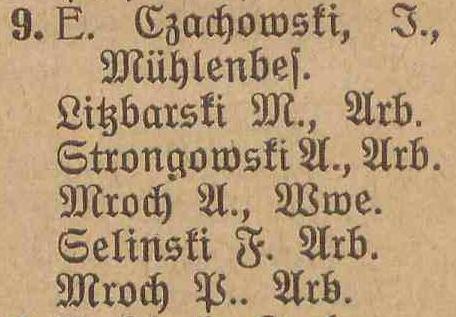 9. E. Czachowski, J.,
Mühlenbes.
Litzbarski M., Arb.
Strongowski A., Arb.
Mroch A., Wwe.
Selinski F. Arb.
Mroch P.. Arb.